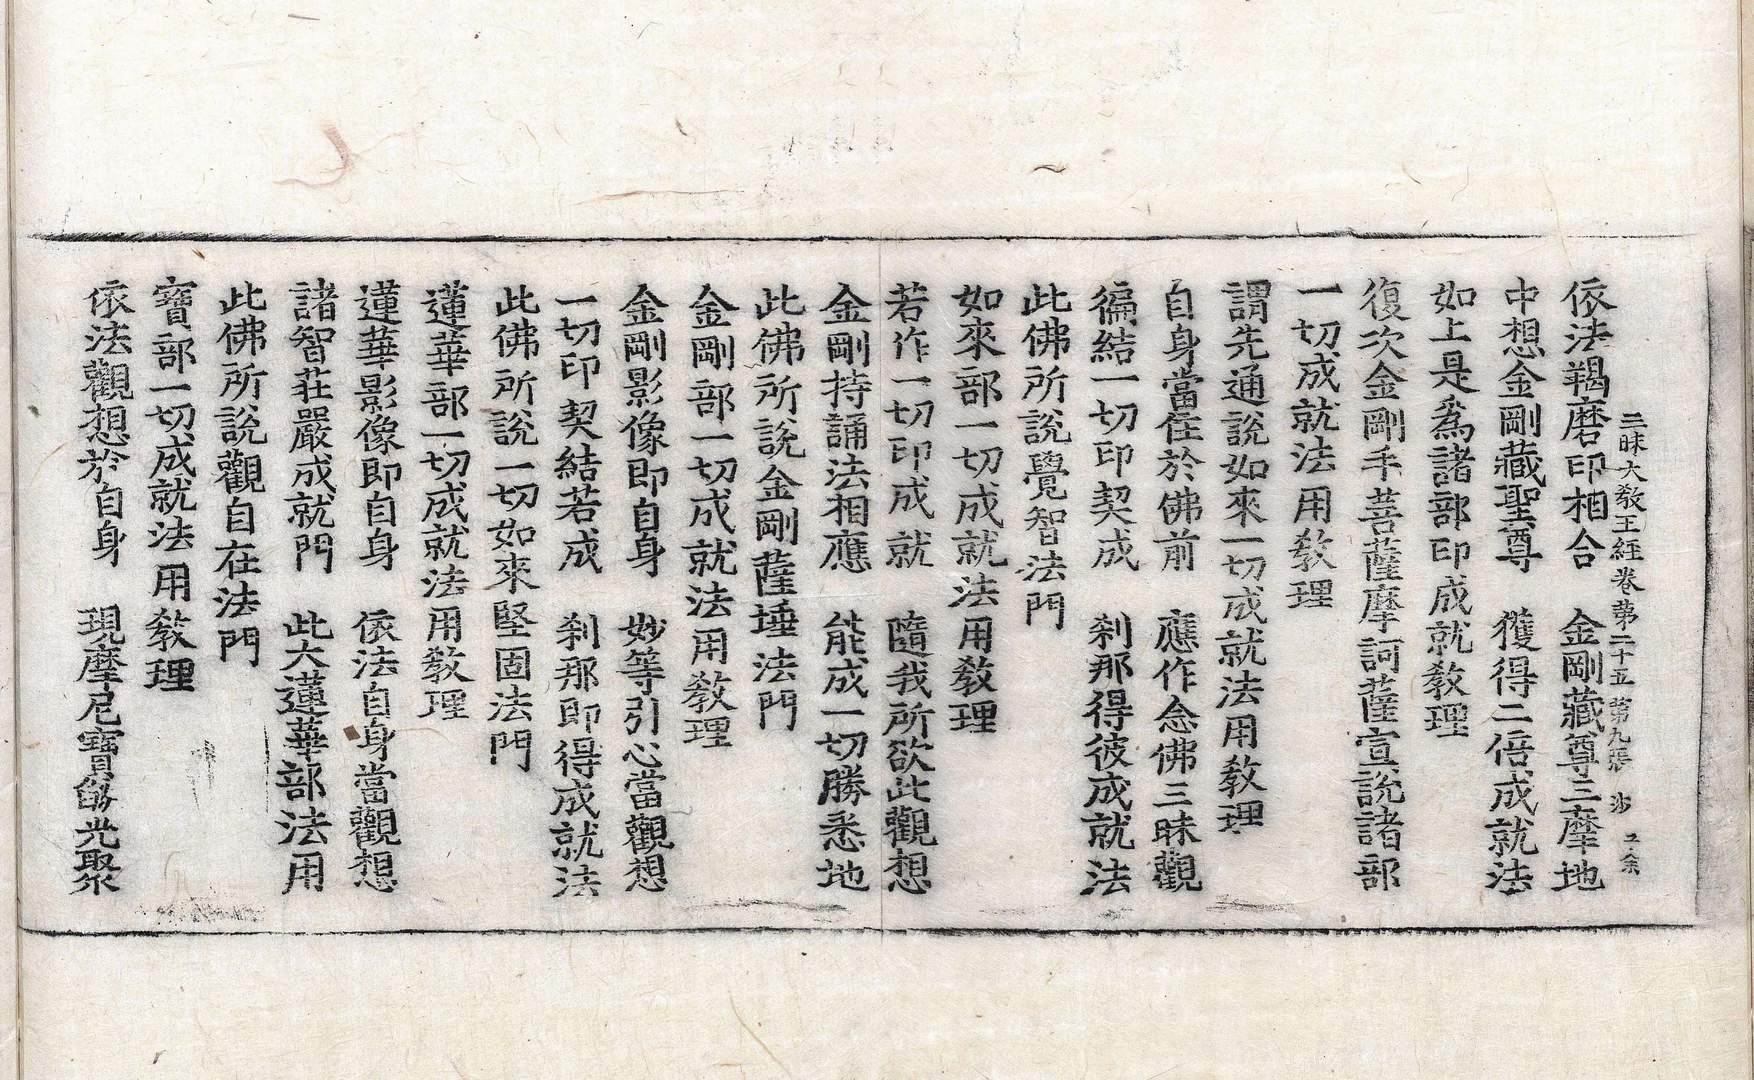 三昧大敎王經卷第二十五 第九張 沙
依法羯磨印相合　金剛藏尊三摩地
中想金剛藏聖尊　獲得二倍成就法
如上是爲諸部印成就敎理
復次金剛手菩薩摩訶薩宣說諸部
一切成就法用敎理
謂先通說如來一切成就法用敎理
自身當住於佛前　應作念佛三昧觀
徧結一切印契成　刹那得彼成就法
此佛所說覺智法門
如來部一切成就法用敎理
若作一切印成就　隨我所欲此觀想
金剛持誦法相應　能成一切勝悉地
此佛所說金剛薩埵法門
金剛部一切成就法用敎理
金剛影像即自身　妙等引心當觀想
一切印契結若成　刹那即得成就法
此佛所說一切如來堅固法門
蓮華部一切成就法用敎理
蓮華影像即自身　依法自身當觀想
諸智莊嚴成就門　此大蓮華部法用
此佛所說觀自在法門
寶部一切成就法用敎理
依法觀想於自身　現摩尼寶勝光聚